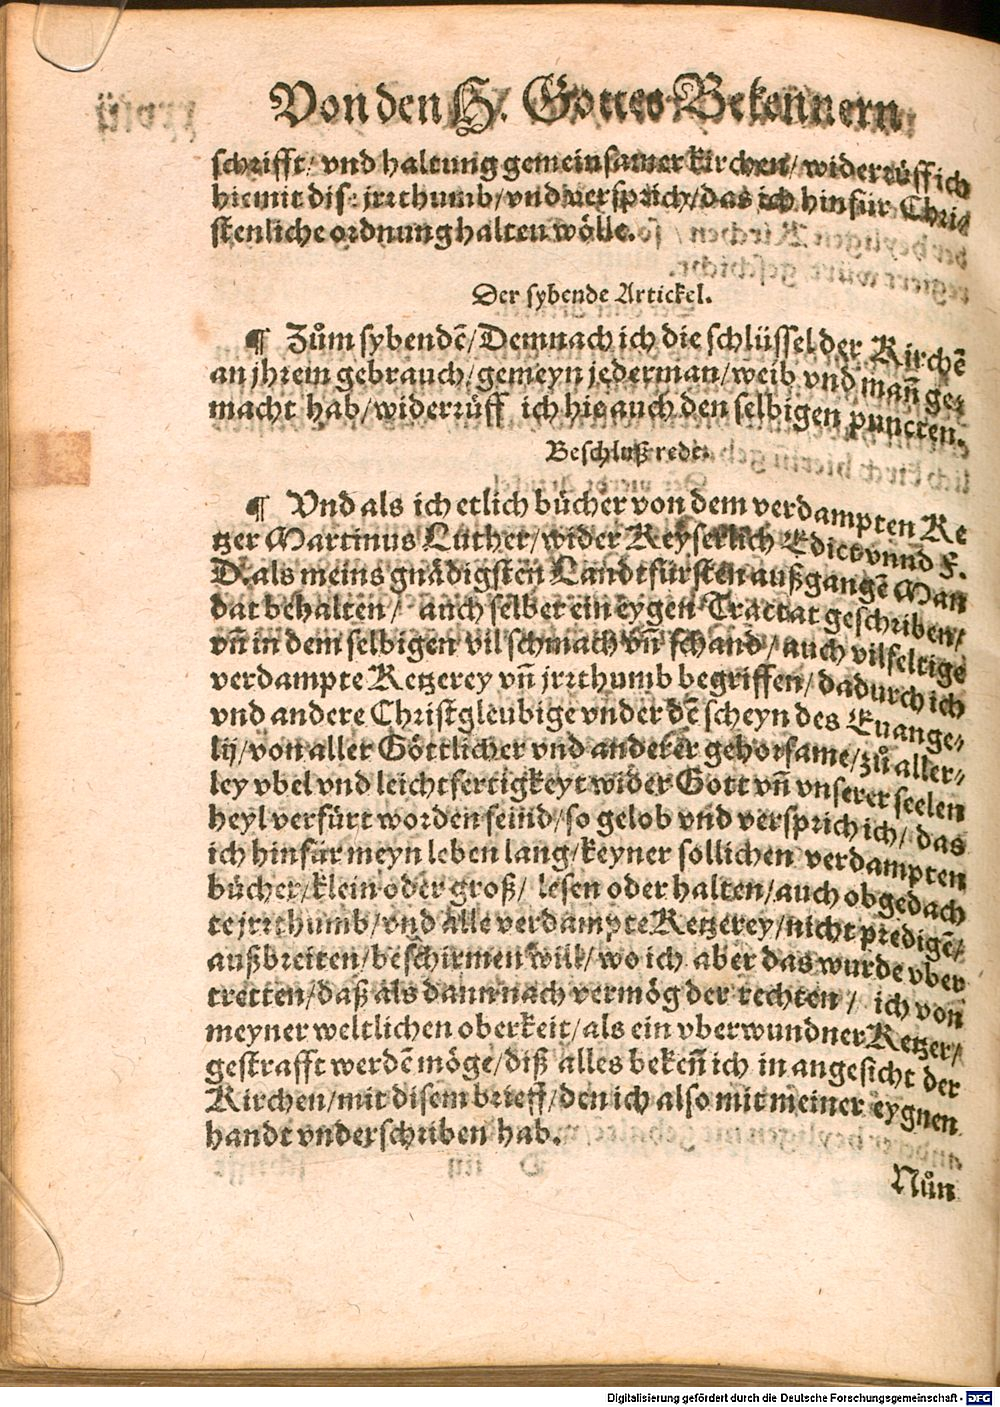 Von den H. Gottes Bekennern
schrifft/ vnd haltung gemeinsamer kirchen/ widerrüff ich
hiemit dise jrrthumb/ vnd versprich/ das ich hinfür Chris
stenliche ordnung halten wölle.
Der sybende Artickel.
¶ Zům sybendē/ Demnach ich die schlüssel der Kirchē
an jhrem gebrauch/ gemeyn jederman/ weib vnd mañ ge-
macht hab/ widerrüff ich hie auch den selbigen puncten.
Beschlußrede.
¶ Vnd als ich etlich bücher von dem verdampten Ke
tzer Martinus Luther/ wider Keyserlich Edict vnnd F.
D. als meins gnädigsten Landtfürsten außgangē Man
dat behalten/ auch selber ein eygen Tractat geschriben/
vñ in dem selbigen vil schmach vñ schand/ auch vilfeltige
verdampte Ketzerey vñ jrrthumb begriffen/ dadurch ich
vnd andere Christgleubige vnder dē scheyn des Euange-
lij/ von aller Göttlicher vnd anderer gehorsame/ zů aller-
ley vbel vnd leichtfertigkeyt wider Gott vñ vnserer seelen
heyl verfürt worden seind/ so gelob vnd versprich ich/ das
ich hinfür meyn leben lang/ keyner sollichen verdampten
bücher/ klein oder groß/ lesen oder halten/ auch obgedach
te jrrthumb/ vnd alle verdampte Ketzerey/ nicht predigē/
außbreiten/ beschirmen will/ wo ich aber das wurde vber
tretten/ daß als dann nach vermög der rechten/ ich von
meyner weltlichen oberkeit/ als ein vberwundner Ketzer/
gestrafft werdē möge/ diß alles bekeñ ich in angesicht der
Kirchen/ mit disem brieff/ den ich also mit meiner eygnen
handt vnderschriben hab.
Nůn
Digitalisierung gefördert durch die Deutsche Forschungsgemeinschaft - DFG